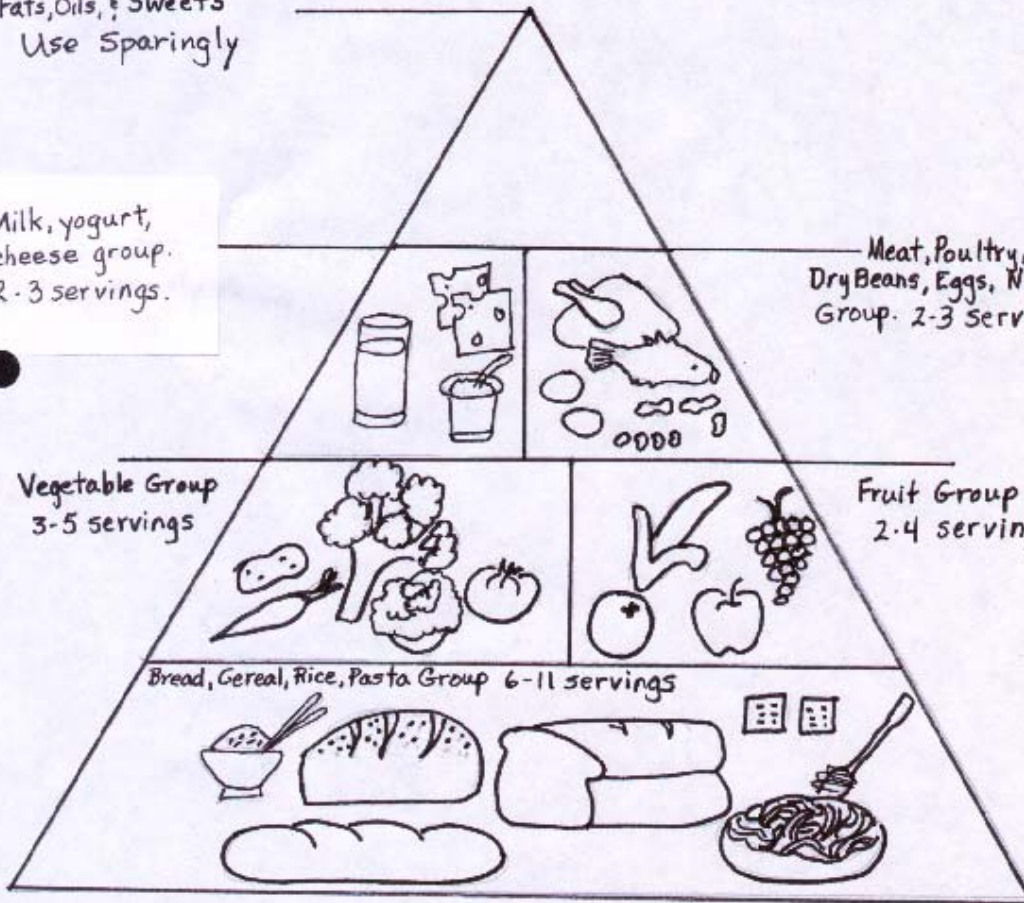 Fats, Oils, & Sweets
Use Sparingly
Milk, yogurt,
cheese group.
2-3 servings.
Meat, Poultry,
Dry Beans, Eggs, N
Group. 2-3 serv
Vegetable Group
3-5 servings
Fruit Group
2-4 servin
Bread, Cereal, Rice, Pasta Group 6-11 servings